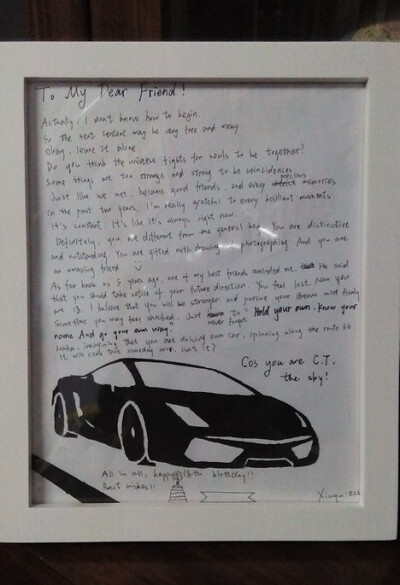 To My Dear Friend!
Actually, I don't know how to begin.
So the next content may be very free and messy
Okay, leave it alone.
Do you think the universe fights for souls to be together?
Some things are too strange and strong to be coincidences.
Just like we met, became good friends, and every precious memories
in the past two years. I'm really grateful to every brilliant moments
It's constant. It's like it's always right now.
Definitely, you are different from the general boy. You are distinctive
and outstanding. You are gifted with drawing and photographing. And you are
an amazing friend
As far back as 5 years ago, one of my best friends reminded me. He said
that you should take notice of your future direction. You feel lost now you
are 18. I believe that you will be stronger and pursue your dream more firmly
Sometime you may feel shocked. Just never forget to "Hold your own. Know your
name And go your own way"
haha, imagining that you are driving own car, spinning along the route 66.
It will come true someday, isn't it?
Cos you are C.T.
the sky!
All in all, happy 18th birthday!!
Best wishes!!